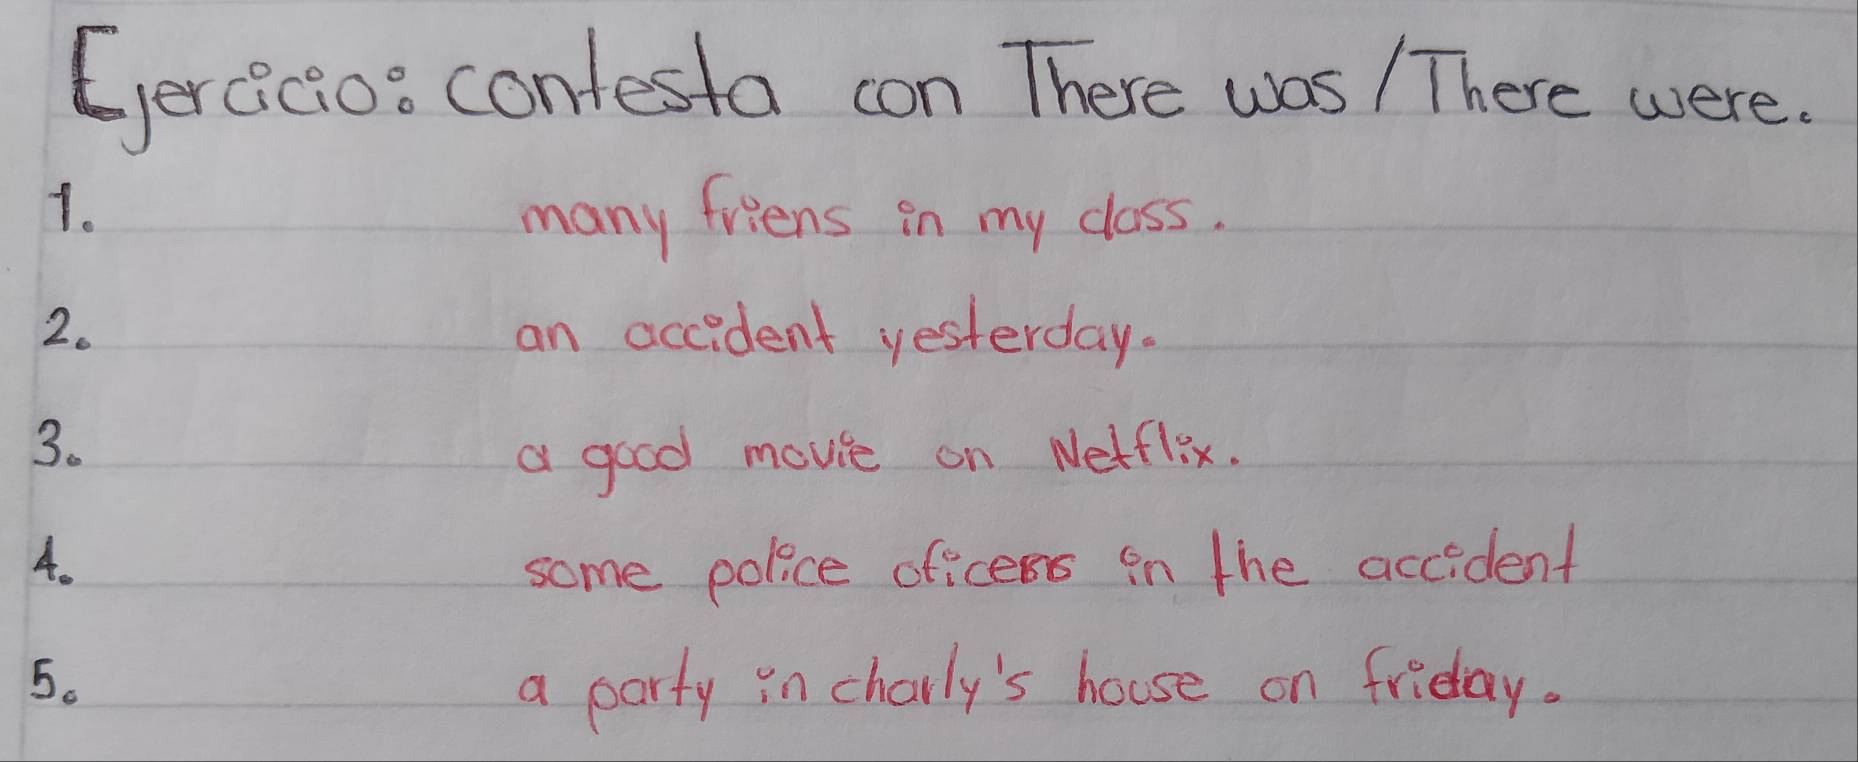 Ejercicio: contesta con There was / There were.
1. many friens in my class.
2. an accident yesterday.
3. a good movie on Netflix.
4. some police oficers in the accident
5. a party in charly's house on friday.